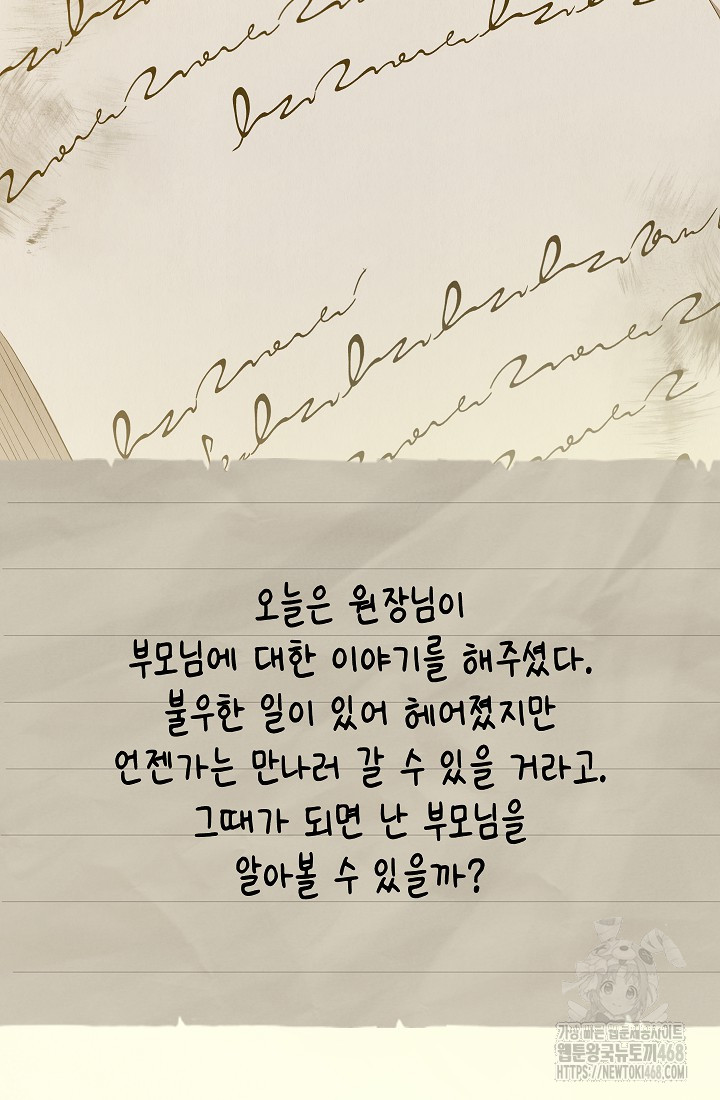 오늘은 원장님이
부모님에 대한 이야기를 해주셨다.
불우한 일이 있어 헤어졌지만
언젠가는 만나러 갈 수 있을 거라고.
그때가 되면 난 부모님을
알아볼 수 있을까?
가장 빠른 웹툰제공사이트
웹툰왕국뉴토끼468
HTTPS://NEWTOKI468.COM